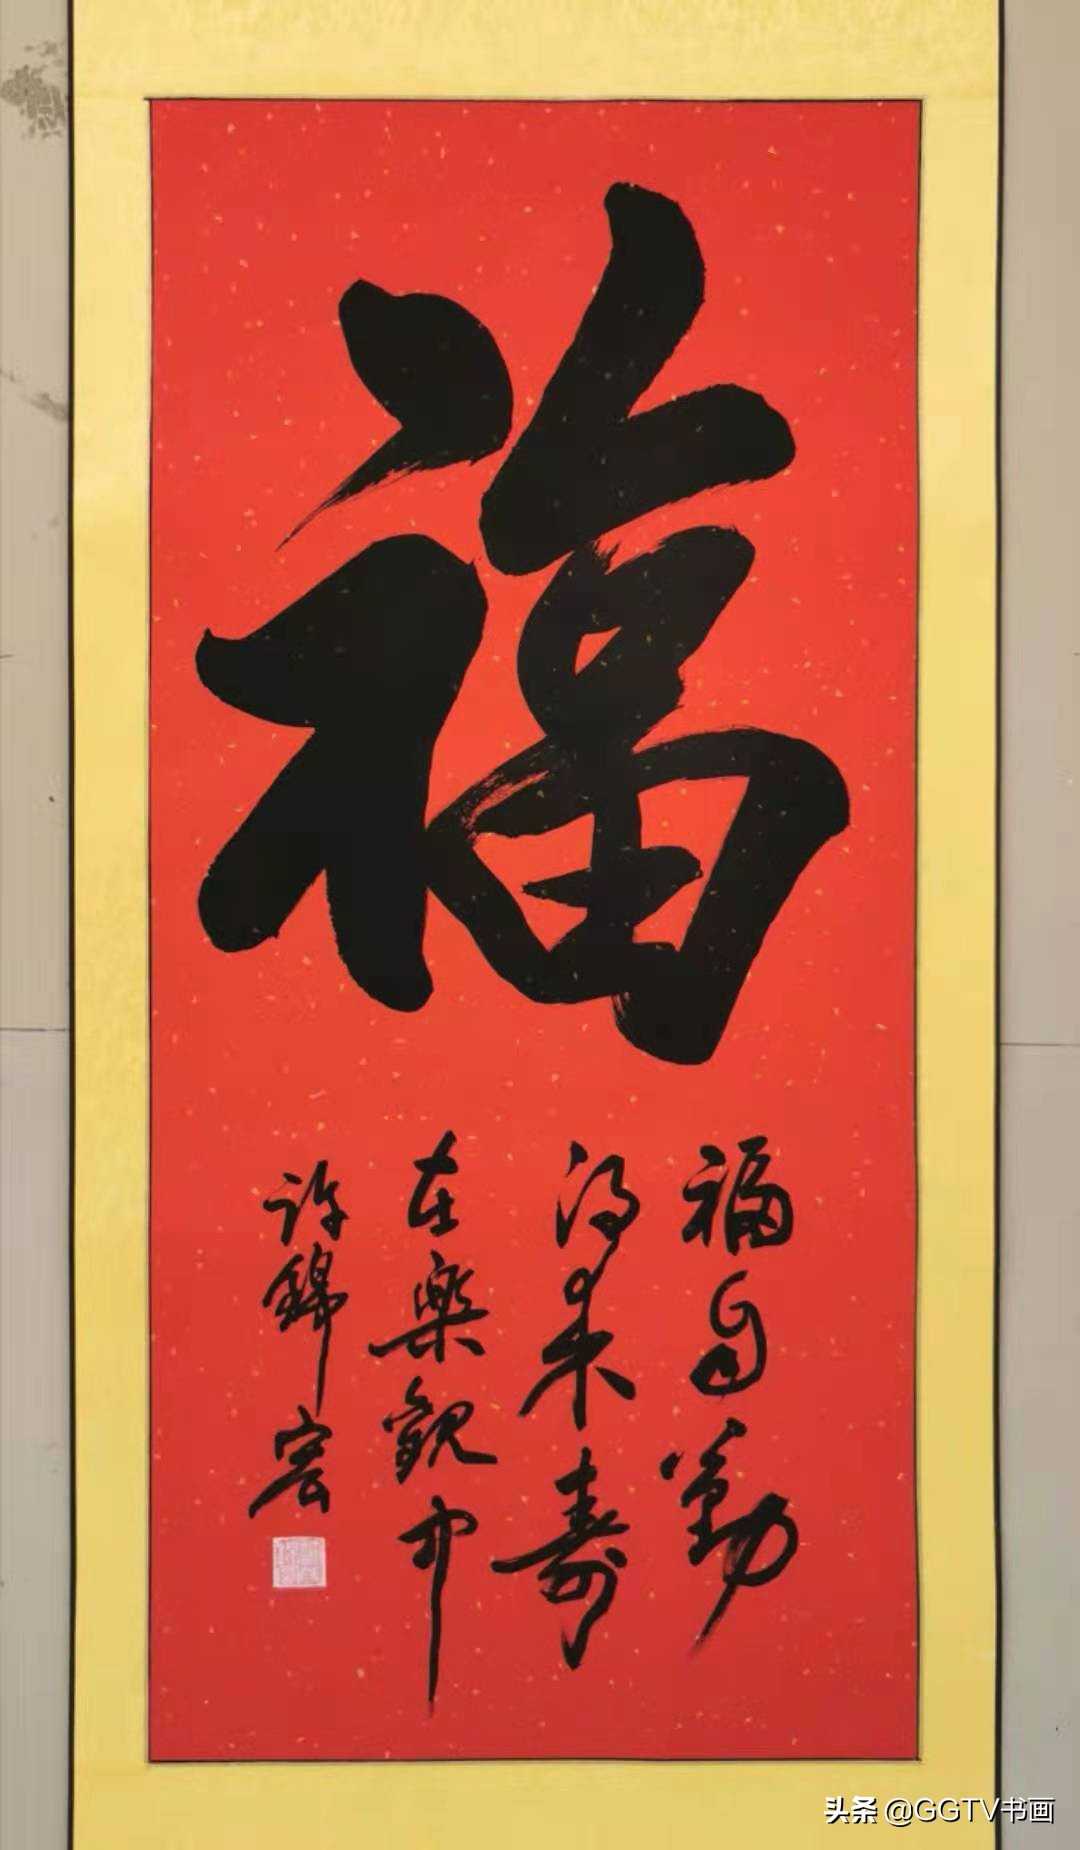 福
福自勤
得来寿
在樂觀中
许錦宏
头条 @GGTV书画